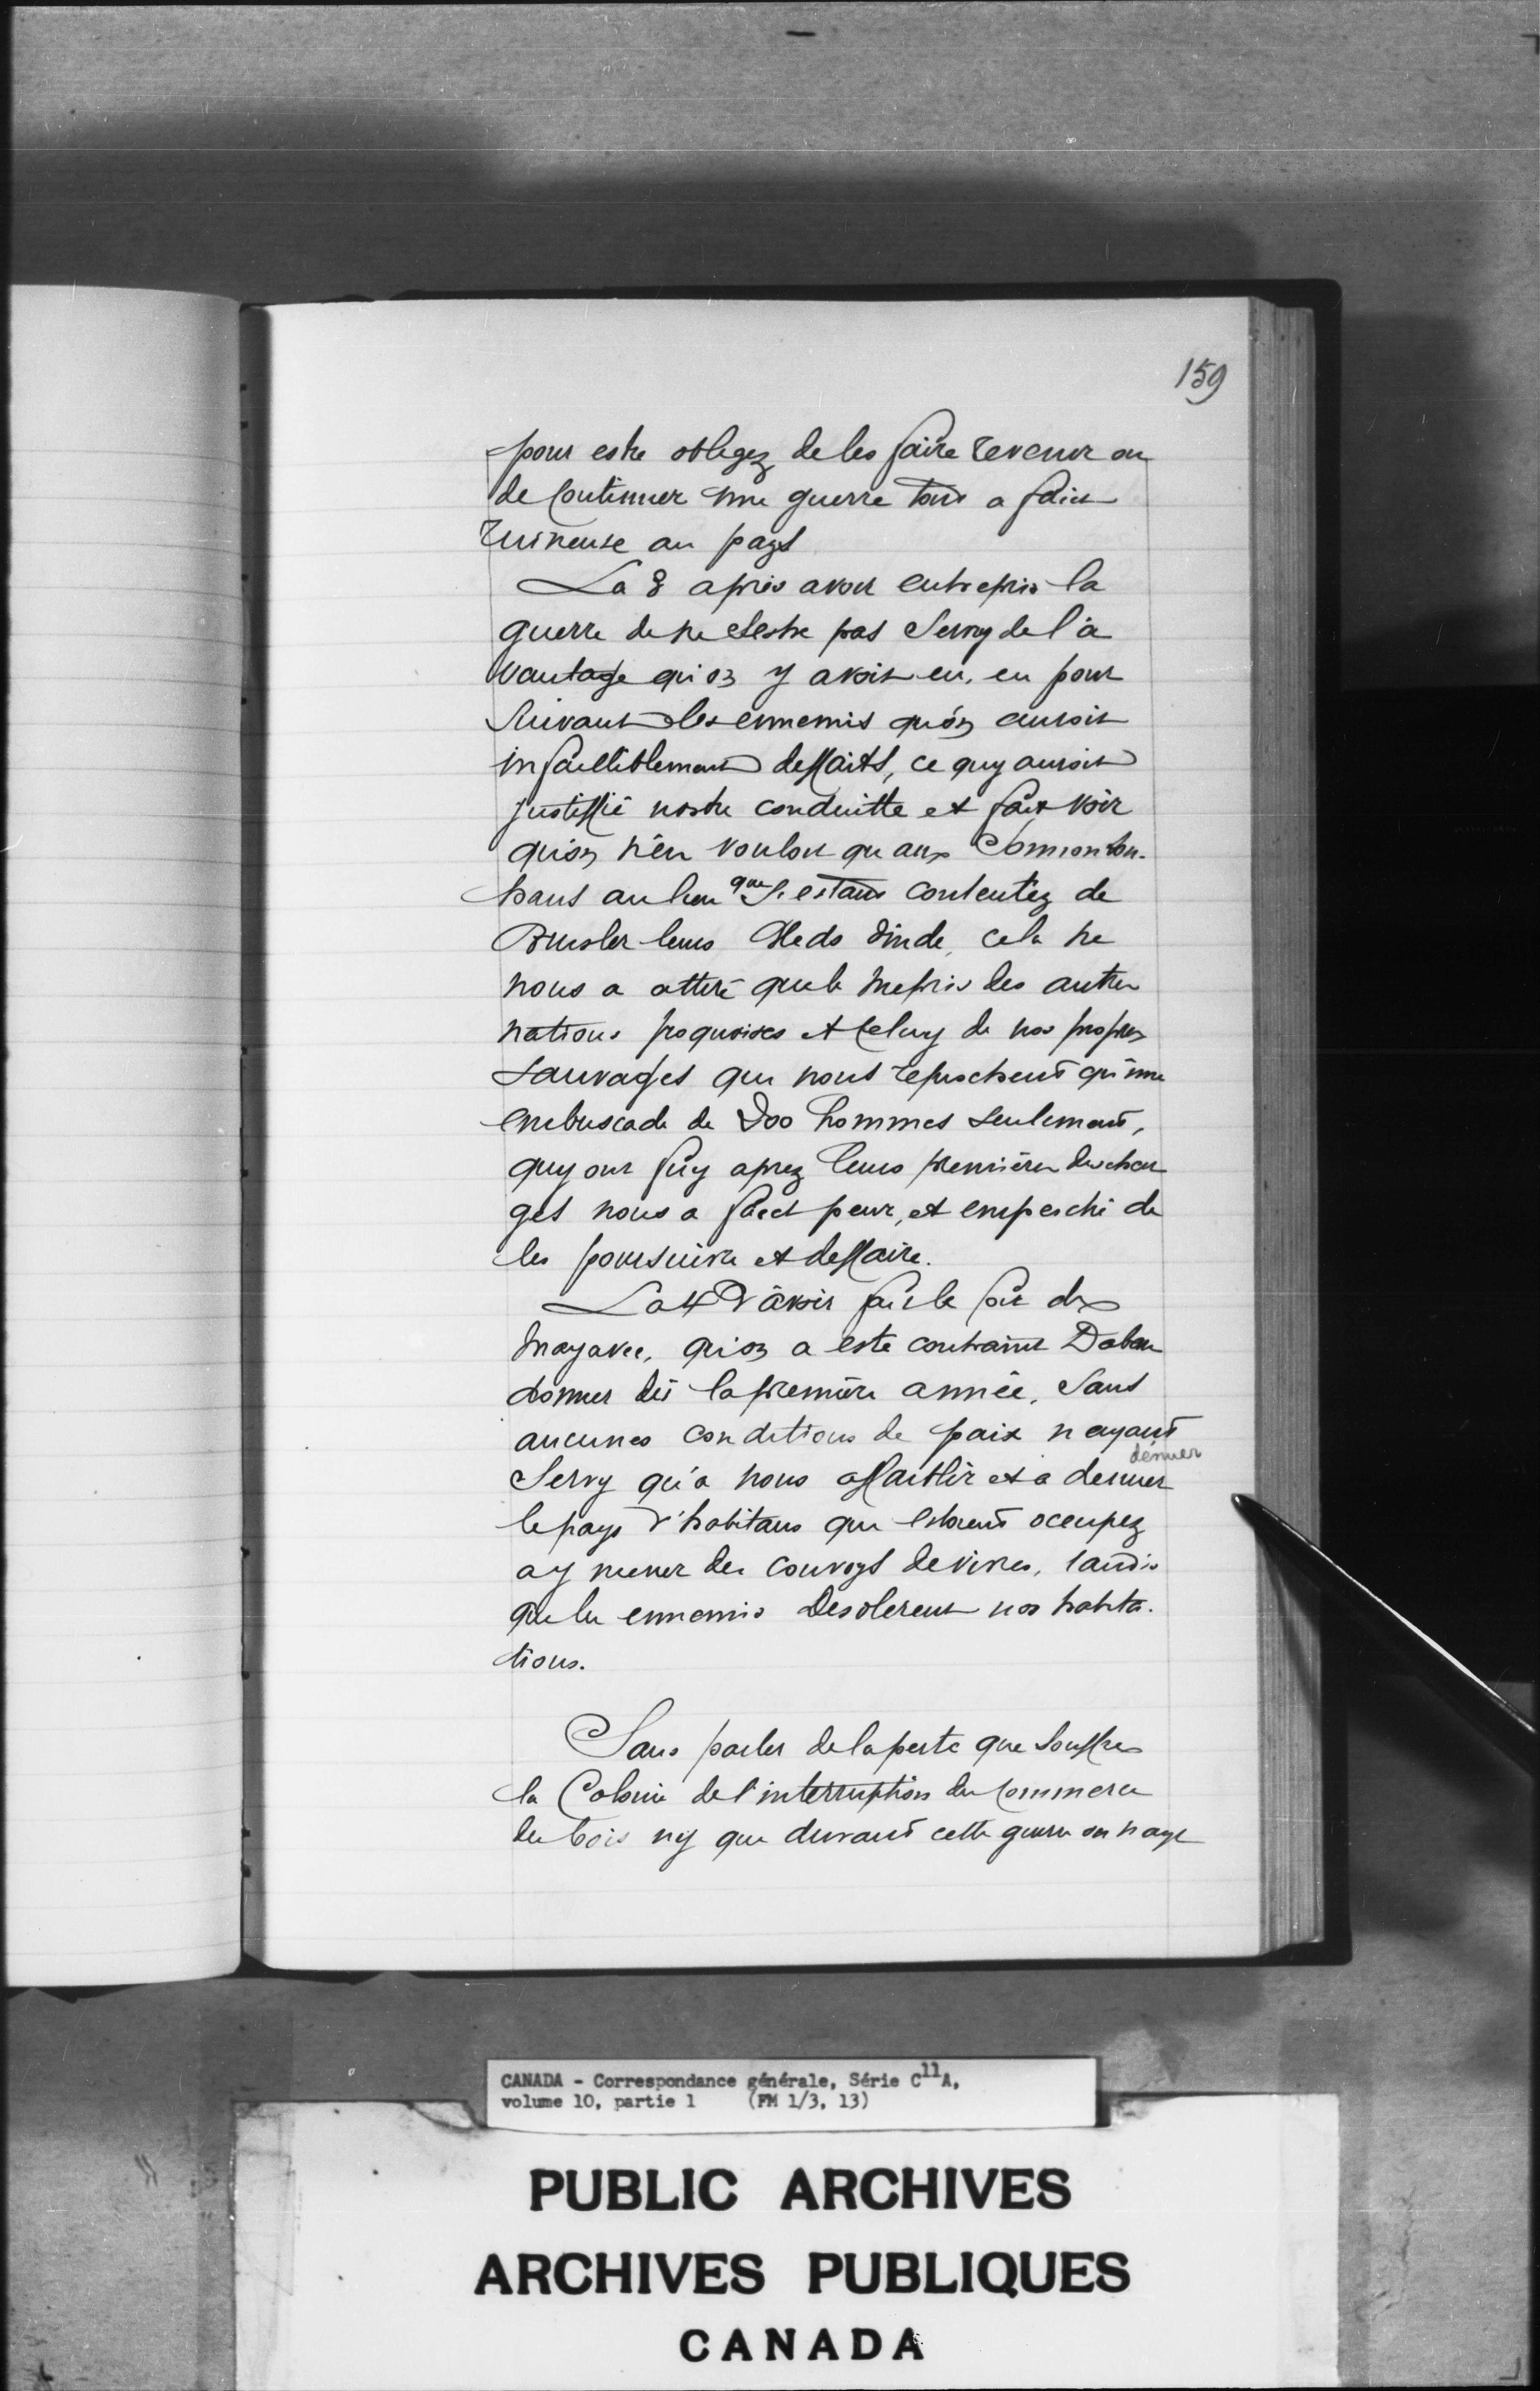 159
pour estre obligez de les faire revenir ou
de Continuer une guerre tout a faict
ruineuse au pays
La 3 apres avoir entrepris la
guerre de ne s'estre pas Servy de l'a
vantage qu'on y avoit eu, en pour
suivant les ennemis qu'on auroit
infailliblement deffaits, ce quy auroit
justiffié nostre conduitte et fait voir
qu'on n'en vouloit qu'aux Sonnonton-
hans au lieu que s'estant contentez de
Brusler leurs Bleds dinde, cela ne
nous a attiré que le mepris des autres
nations froquoises et Celuy de nos propres
Sauvages qui nous reprochent qu'une
embuscade de 300 hommes seulement,
quy ont fuy aprez leurs premières deschar
ges nous a faict peur, et empesché de
les poursuivre et deffaire.
La 4 D'avoir fait le fort de
niagara, qu'on a esté contraint Daban
donner dès la première année, Sans
aucunes conditions de paix n'ayant
dénuer
Servy qu'a nous affaiblir et a denuer
le pays d'habitans qui estoient occupez
a y mener des convoys de vivres, tandis
que les ennemis Desolerent nos habita-
tions.
Sans parler de la perte que Souffre
la Colonie de l'interruption du Commerce
des bois ny que durant cette guerre on naye
CANADA - Correspondance générale, Série C11A,
volume 10, partie 1 (FM 1/3, 13)
PUBLIC ARCHIVES
ARCHIVES PUBLIQUES
CANADA